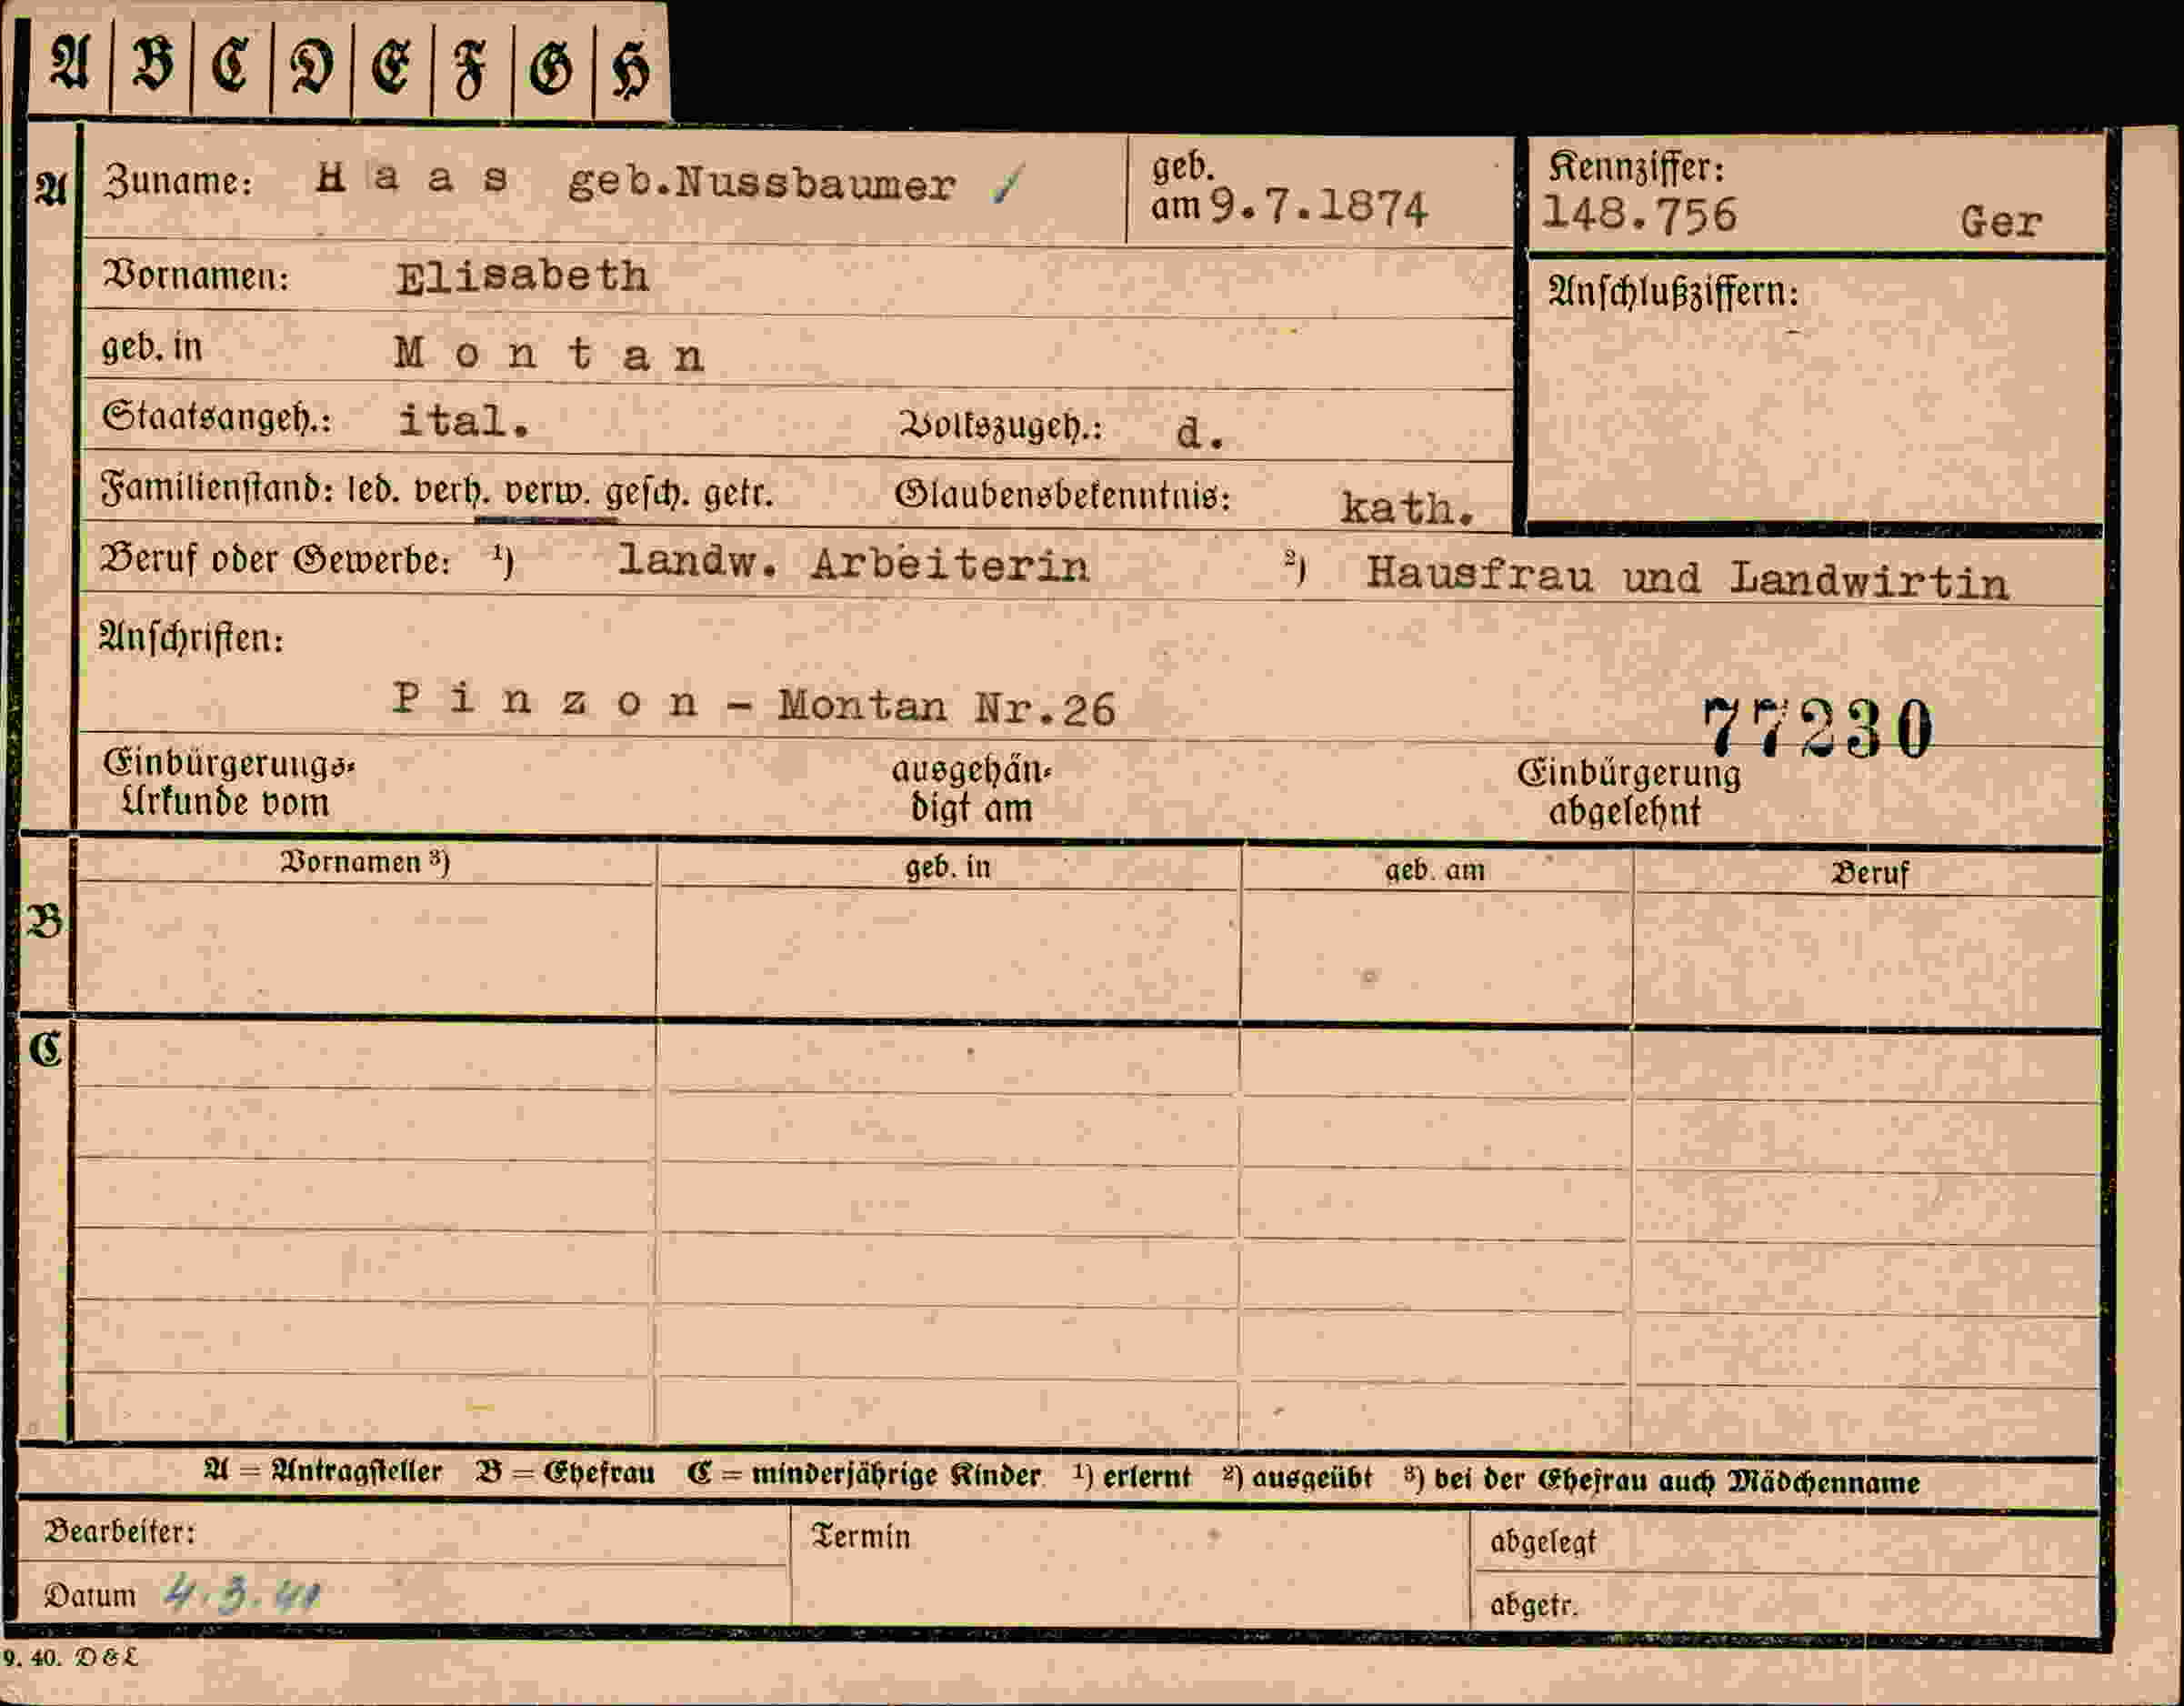 A B C D E F G H
A Zuname: H a a s geb.Nussbaumer / geb. am 9.7.1874 Kennziffer: 148.756 Ger
Vornamen: Elisabeth Anschlußziffern:
geb. in M o n t a n
Staatsangeh.: ital. Volkszugeh.: d.
Familienstand: led. verh. verw. gesch. getr. Glaubensbekenntnis: kath.
Beruf oder Gewerbe: ¹) landw. Arbeiterin ²) Hausfrau und Landwirtin
Anschriften:
P i n z o n - Montan Nr.26 77230
Einbürgerungs- ausgehän- Einbürgerung
Urkunde vom digt am abgelehnt
Vornamen ³) geb. in geb. am Beruf
B
C
A = Antragsteller B = Ehefrau C = minderjährige Kinder ¹) erlernt ²) ausgeübt ³) bei der Ehefrau auch Mädchenname
Bearbeiter: Termin abgelegt
Datum 4.3.41 abgetr.
9. 40. D & L